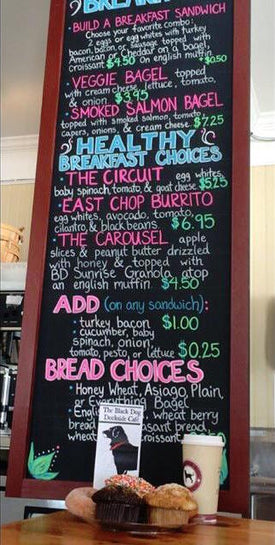 BREAKFAST
• BUILD A BREAKFAST SANDWICH
Choose your favorite combo:
2 eggs or egg whites with turkey
bacon, bacon, or sausage topped with
American or Cheddar on a bagel,
croissant $4.50 or English muffin +$0.50
• VEGGIE BAGEL topped
with cream cheese, lettuce, tomato,
& onion $3.95
• SMOKED SALMON BAGEL
topped with smoked salmon, tomato,
capers, onions, & cream cheese $7.25
HEALTHY
BREAKFAST CHOICES
• THE CIRCUIT egg whites,
baby spinach, tomato, & goat cheese $5.25
• EAST CHOP BURRITO
egg whites, avocado, tomato,
cilantro, & black beans $6.95
• THE CAROUSEL apple
slices & peanut butter drizzled
with honey & topped with
BD Sunrise Granola atop
an english muffin $4.50
ADD (on any sandwich):
• turkey, bacon $1.00
• cucumber, baby
spinach, onion,
tomato, pesto, or lettuce $0.25
BREAD CHOICES
• Honey Wheat, Asiago, Plain,
or Everything Bagel
• wheat berry
bread bread,
wheat croissant
The Black Dog
Dockside Cafe